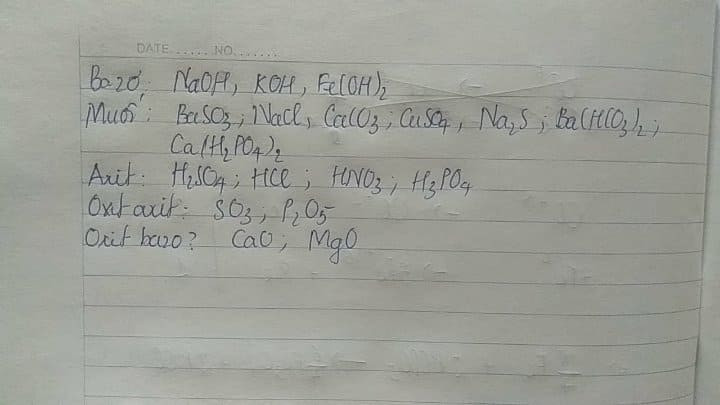 DATE...... NO.......
Bazơ: NaOH, KOH, Fe(OH)₂
Muối: BaSO₃; NaCl, CaCO₃; CuSO₄, Na₂S; Ba(HCO₃)₂;
Ca(H₂PO₄)₂
Axit: H₂SO₄; HCl; HNO₃; H₃PO₄
Oxit axit: SO₃; P₂O₅
Oxit bazơ? CaO; MgO